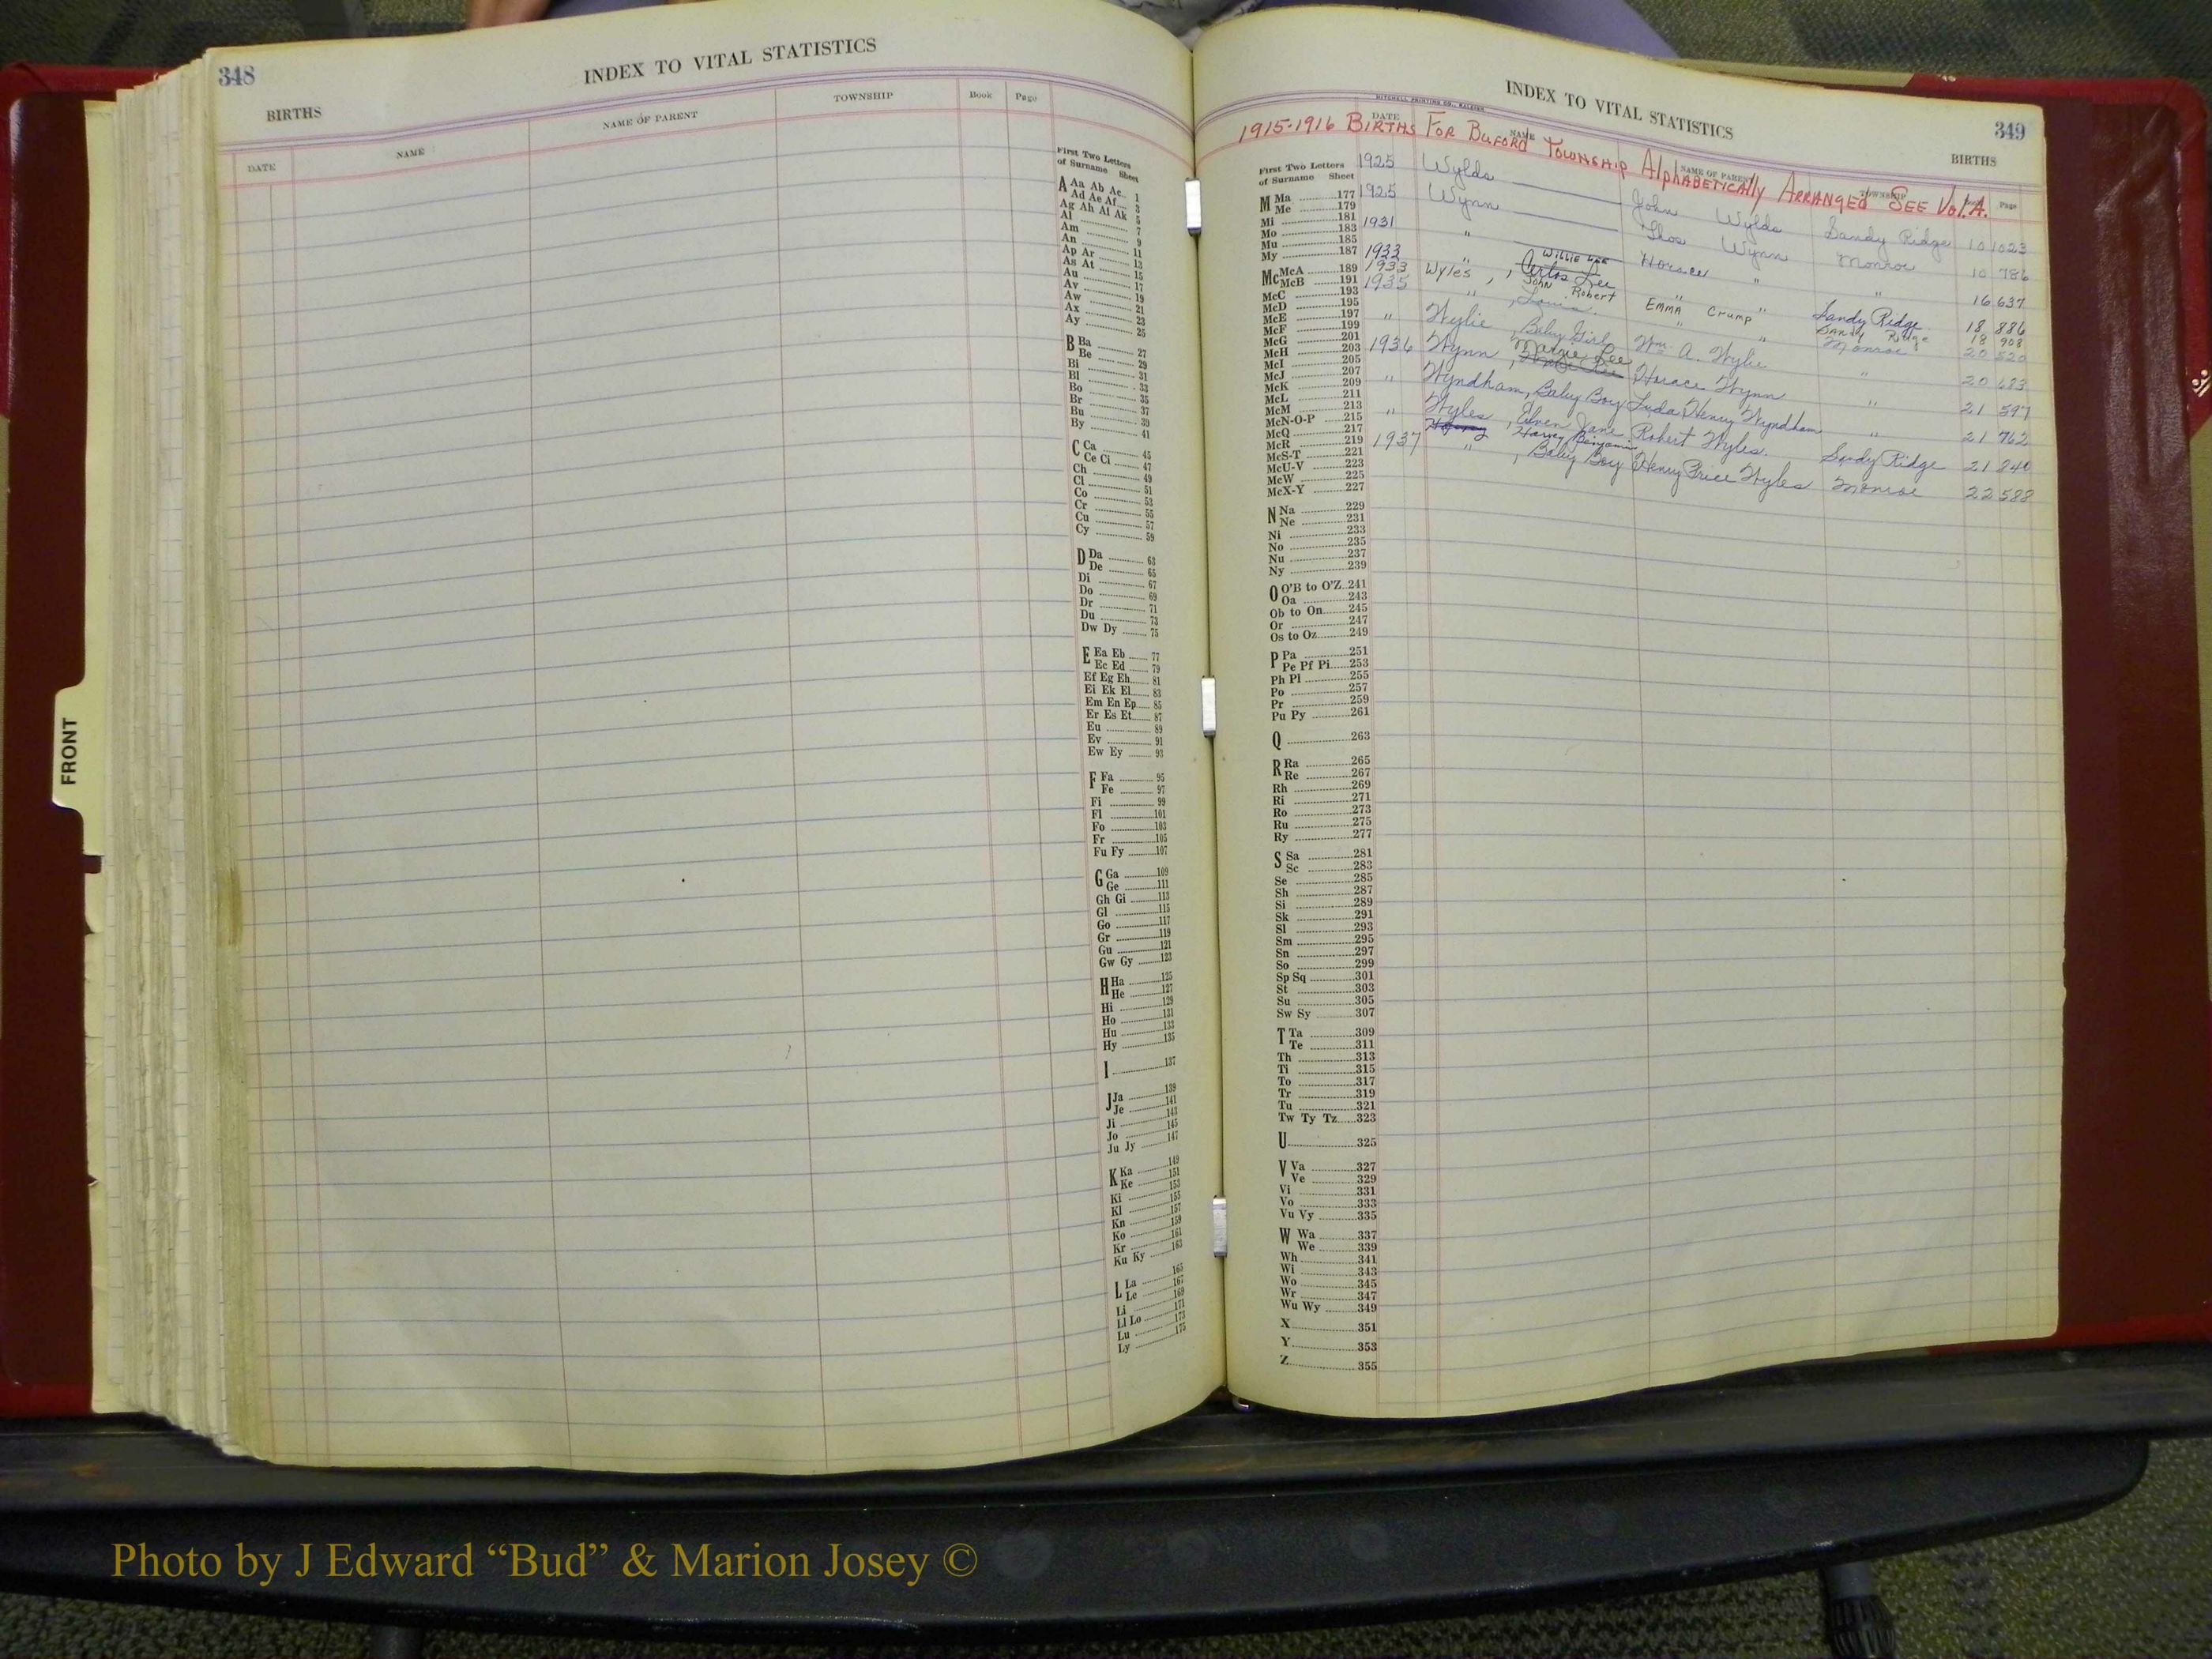 348
INDEX TO VITAL STATISTICS
BIRTHS
DATE NAME NAME OF PARENT TOWNSHIP Book Page
First Two Letters
of Surname Sheet
A Aa Ab Ac 1
Ad Ae Af 3
Ag Ah Ai Ak 5
Al 7
Am 9
An 11
Ap Ar 13
As At 15
Au 17
Av 19
Aw 21
Ax 23
Ay 25
B Ba 27
Be 29
Bi 31
Bl 33
Bo 35
Br 37
Bu 39
By 41
C Ca 45
Ce Ci 47
Ch 49
Cl 51
Co 53
Cr 55
Cu 57
Cy 59
D Da 63
De 65
Di 67
Do 69
Dr 71
Du 73
Dw Dy 75
E Ea Eb 77
Ec Ed 79
Ef Eg Eh 81
Ei Ek El 83
Em En Ep 85
Er Es Et 87
Eu 89
Ev 91
Ew Ey 93
F Fa 95
Fe 97
Fi 99
Fl 101
Fo 103
Fr 105
Fu Fy 107
G Ga 109
Ge 111
Gh Gi 113
Gl 115
Go 117
Gr 119
Gu 121
Gw Gy 123
H Ha 125
He 127
Hi 129
Ho 131
Hu 133
Hy 135
I 137
J Ja 139
Je 141
Ji 143
Jo 145
Ju Jy 147
K Ka 149
Ke 151
Ki 153
Kl 155
Kn 157
Ko 159
Kr 161
Ku Ky 163
L La 165
Le 167
Li 169
Ll Lo 171
Lu 173
Ly 175
FRONT
INDEX TO VITAL STATISTICS
349
BIRTHS
MITCHELL PRINTING CO., RALEIGH
DATE NAME NAME OF PARENT TOWNSHIP Page
1915-1916 BIRTHS FOR BUFORD TOWNSHIP AlphABETICAlly ARRANGED SEE Vol. A.
First Two Letters
of Surname Sheet
M Ma 177
Me 179
Mi 181
Mo 183
Mu 185
My 187
Mc McA 189
McB 191
McC 193
McD 195
McE 197
McF 199
McG 201
McH 203
McI 205
McJ 207
McK 209
McL 211
McM 213
McN-O-P 215
McQ 217
McR 219
McS-T 221
McU-V 223
McW 225
McX-Y 227
N Na 229
Ne 231
Ni 233
No 235
Nu 237
Ny 239
O O'B to O'Z 241
Oa 243
Ob to On 245
Or 247
Os to Oz 249
P Pa 251
Pe Pf Pi 253
Ph Pl 255
Po 257
Pr 259
Pu Py 261
Q 263
R Ra 265
Re 267
Rh 269
Ri 271
Ro 273
Ru 275
Ry 277
S Sa 281
Sc 283
Se 285
Sh 287
Si 289
Sk 291
Sl 293
Sm 295
Sn 297
So 299
Sp Sq 301
St 303
Su 305
Sw Sy 307
T Ta 309
Te 311
Th 313
Ti 315
To 317
Tr 319
Tu 321
Tw Ty Tz 323
U 325
V Va 327
Ve 329
Vi 331
Vo 333
Vu Vy 335
W Wa 337
We 339
Wh 341
Wi 343
Wo 345
Wr 347
Wu Wy 349
X 351
Y 353
Z 355
1925 Wylds John Wylds Sandy Ridge 10 1023
1925 Wynn Thos Wynn Monroe 10 786
1931 " Horace " " 16 637
WILLIE LEE
1933 " " " Sandy Ridge 18 886
1933 Wyles, JOHN Robert EMMA Crump SANdy Ridge 18 908
1935 " " Monroe 20 520
" Wylie, Baby Girl Wm. A. Wylie " 20 683
1936 Wynn, Mamie Lee Horace Wynn " 21 597
" Wyndham, Baby Boy Luda Henry Wyndham " 21 762
" Wyles, Elven Jane Robert Wyles. Sandy Ridge 21 840
Harvey Benjamin
1937 ", Baby Boy Henry Price Wyles Monroe 22 588
Photo by J Edward “Bud” & Marion Josey ©